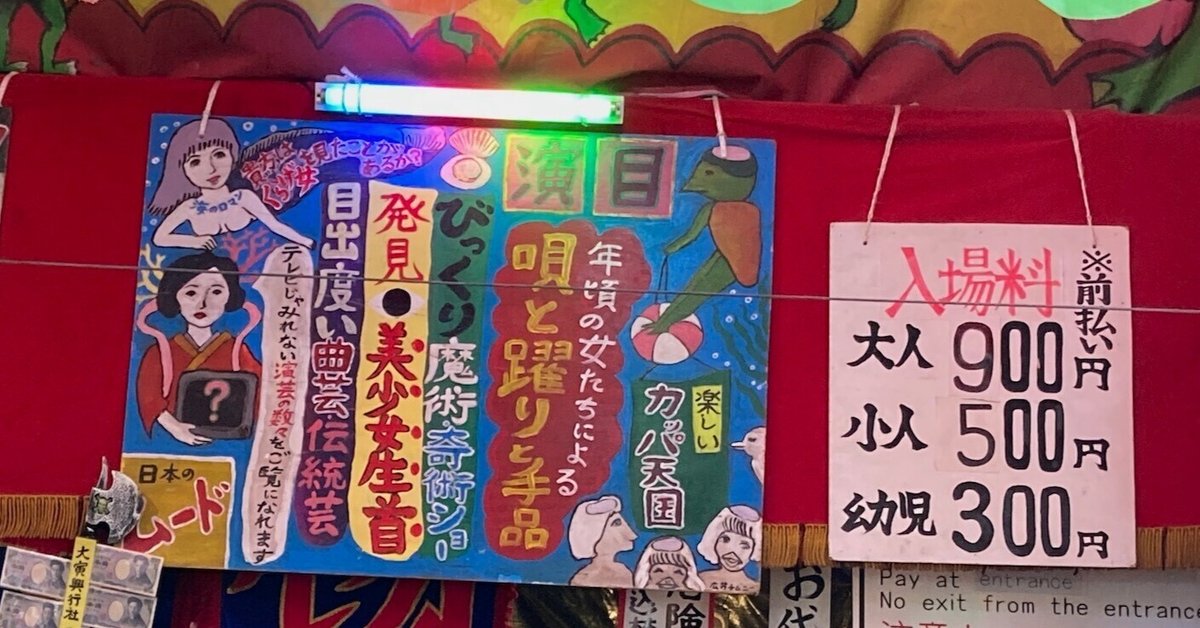 演目
年頃の女たちによる
唄と躍りと手品
楽しい
カッパ天国
びっくり魔術・奇術ショー
発見
美少女生首
目出度い曲芸伝統芸
貴方はくらげ女を見たことがあるか?
海のロマン
テレビじゃみれない演芸の数々をご覧になれます
?
日本の
ムード
大寅興行社
入場料
※前払い
大人 900円
小人 500円
幼児 300円
お代
危険
Pay at entrance
No exit from the entrance